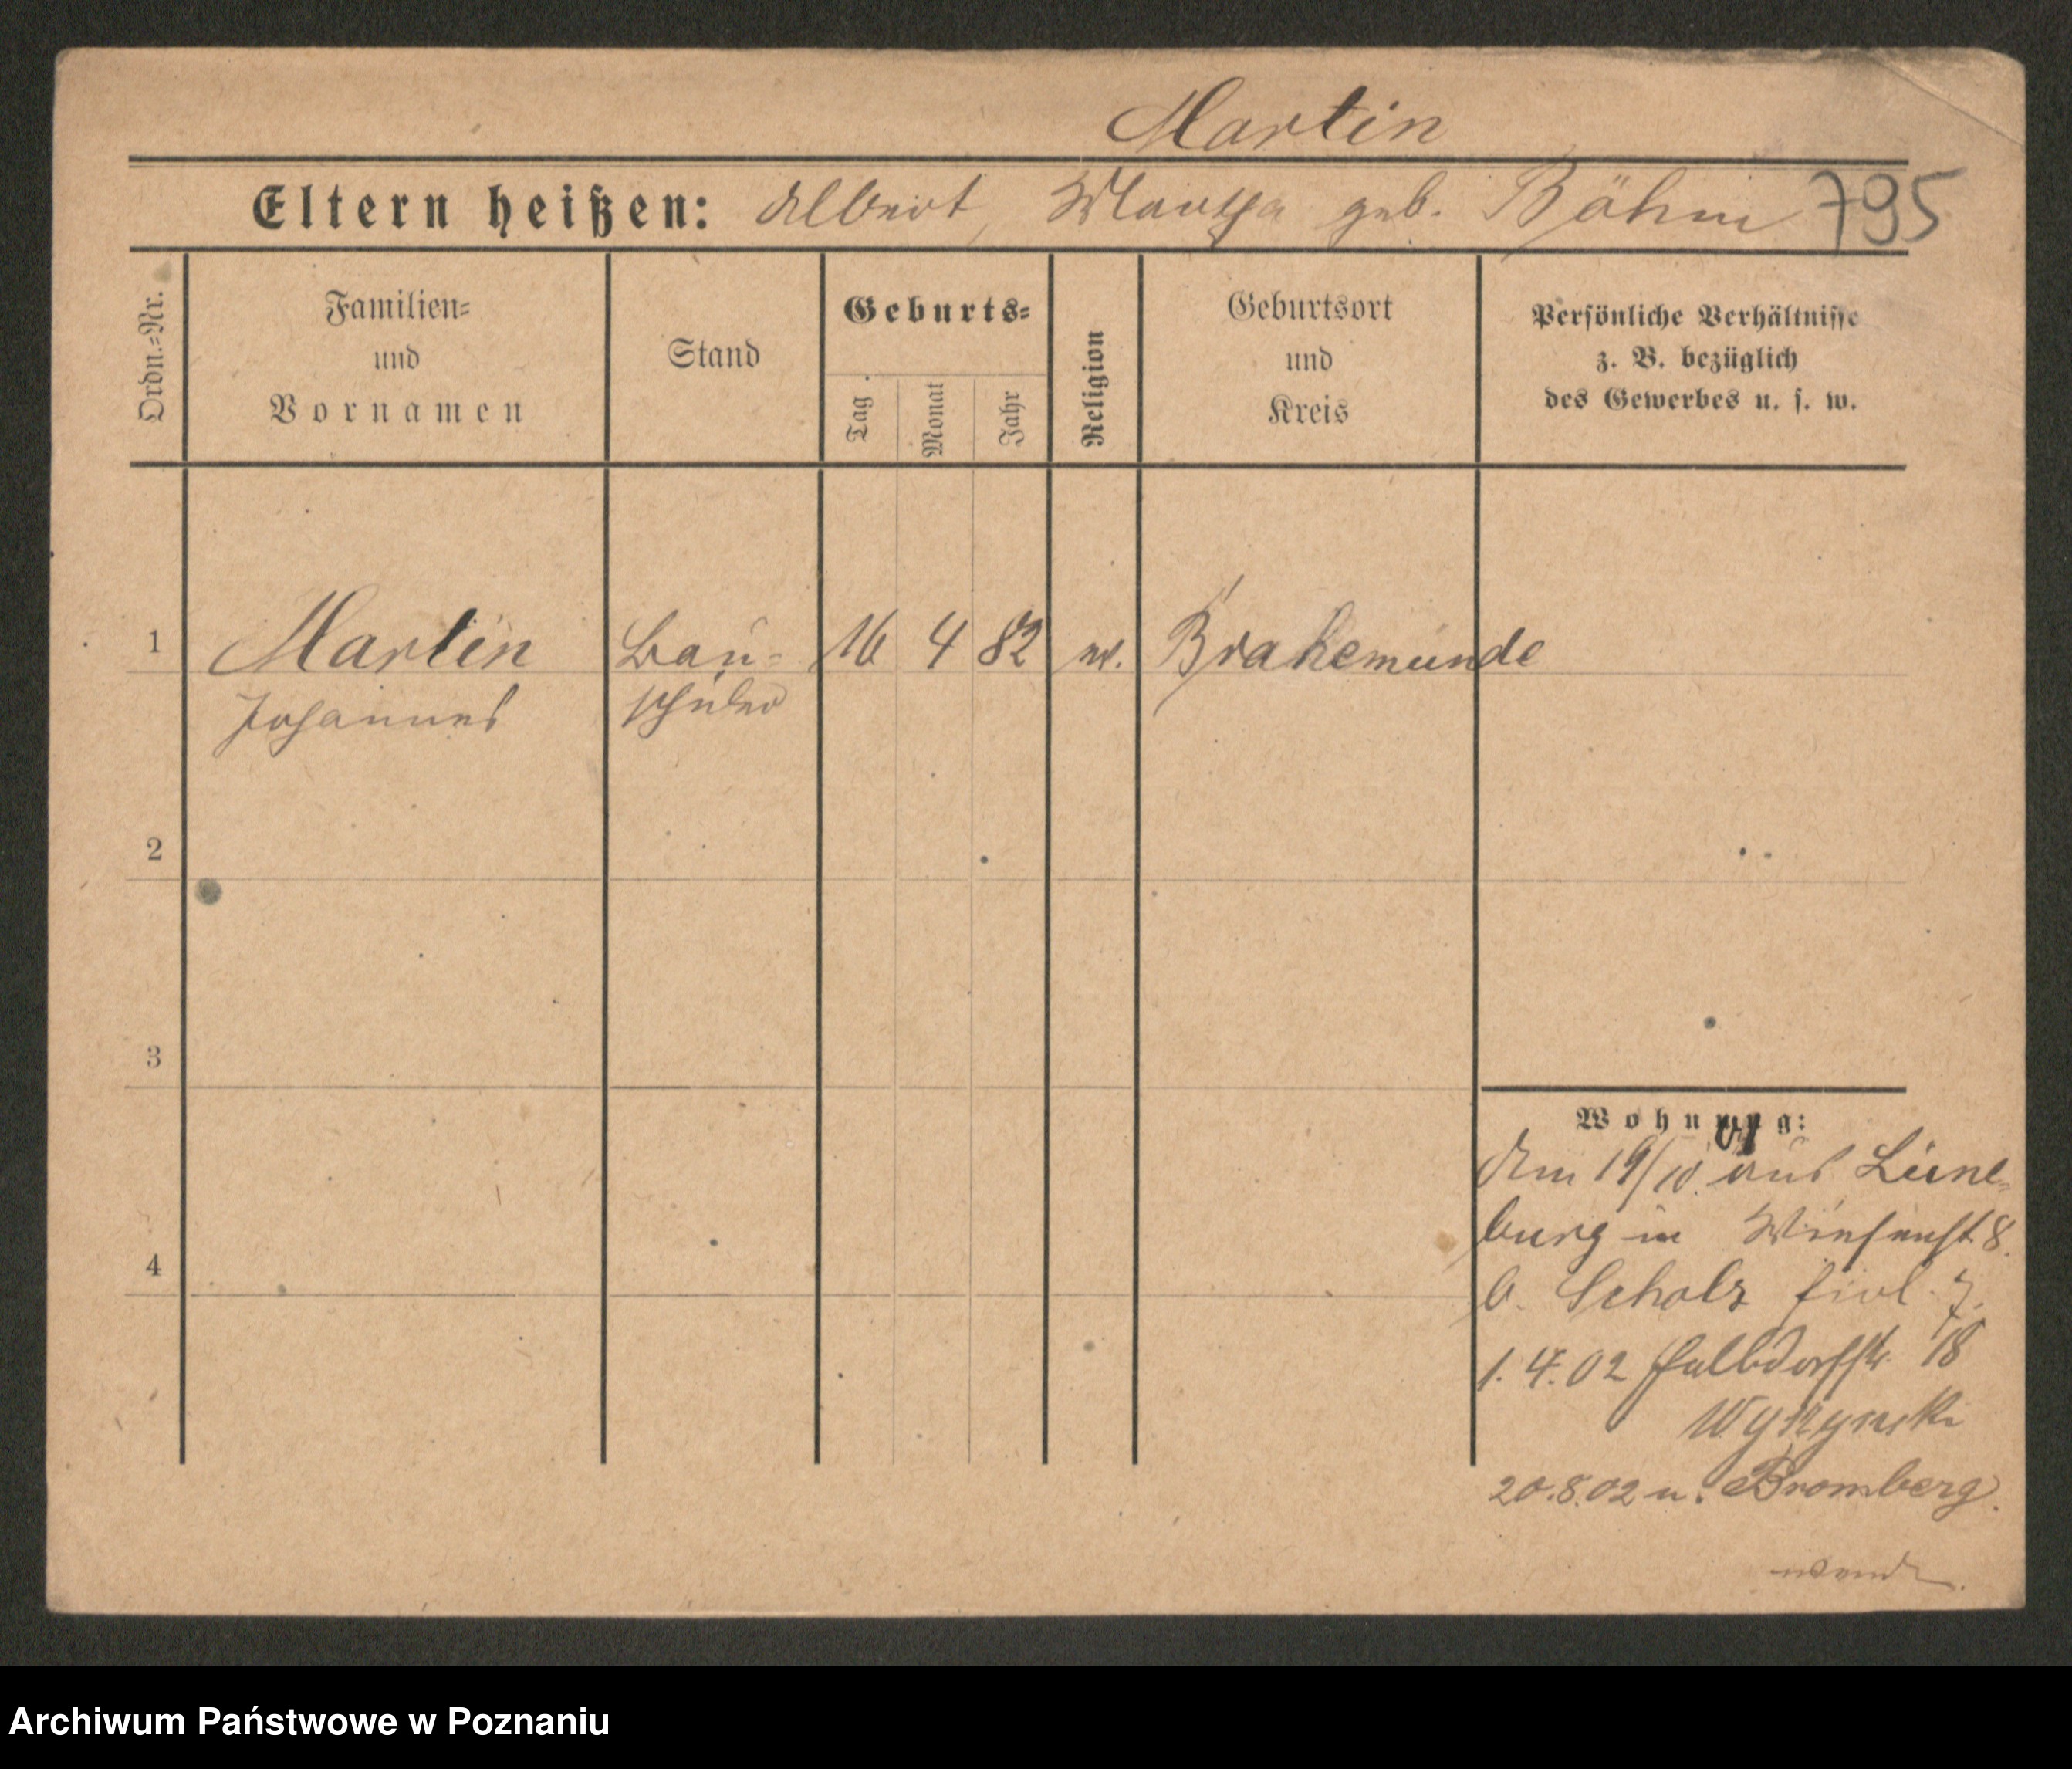 Martin
Eltern heißen: Albert, Martha geb. Böhm 795
Ordn.=Nr.
Familien=
und
Vornamen
Stand
Geburts=
Tag
Monat
Jahr
Religion
Geburtsort
und
Kreis
Persönliche Verhältnisse
z. B. bezüglich
des Gewerbes u. s. w.
1 Martin Bau= 16 4 82 ev. Brakemünde
Johannes schüler
2
3
4
Wohnung:
01
Am 19/10. aus Lüne=
burg in Wiesenst 8.
b. Scholz
1. 4. 02 Halbdorfstr. 18
20.8.02 n. Bromberg.
wende.
Archiwum Państwowe w Poznaniu